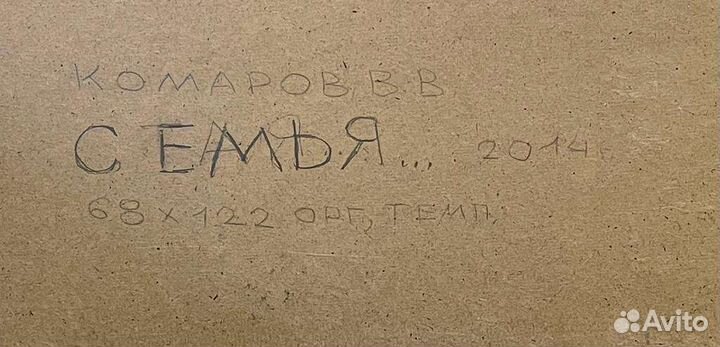 КОМАРОВ В.В
СЕМЬЯ... 2014г.
68 х 122 ОРГ, ТЕМП.
Avito